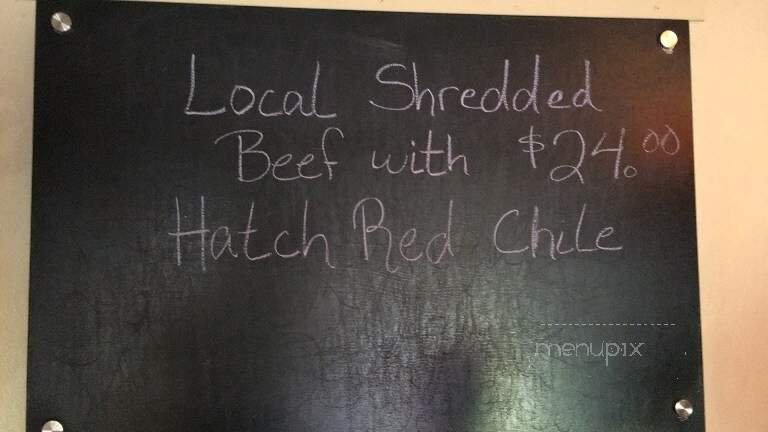 Local Shredded
Beef with $24.00
Hatch Red Chile
menupix